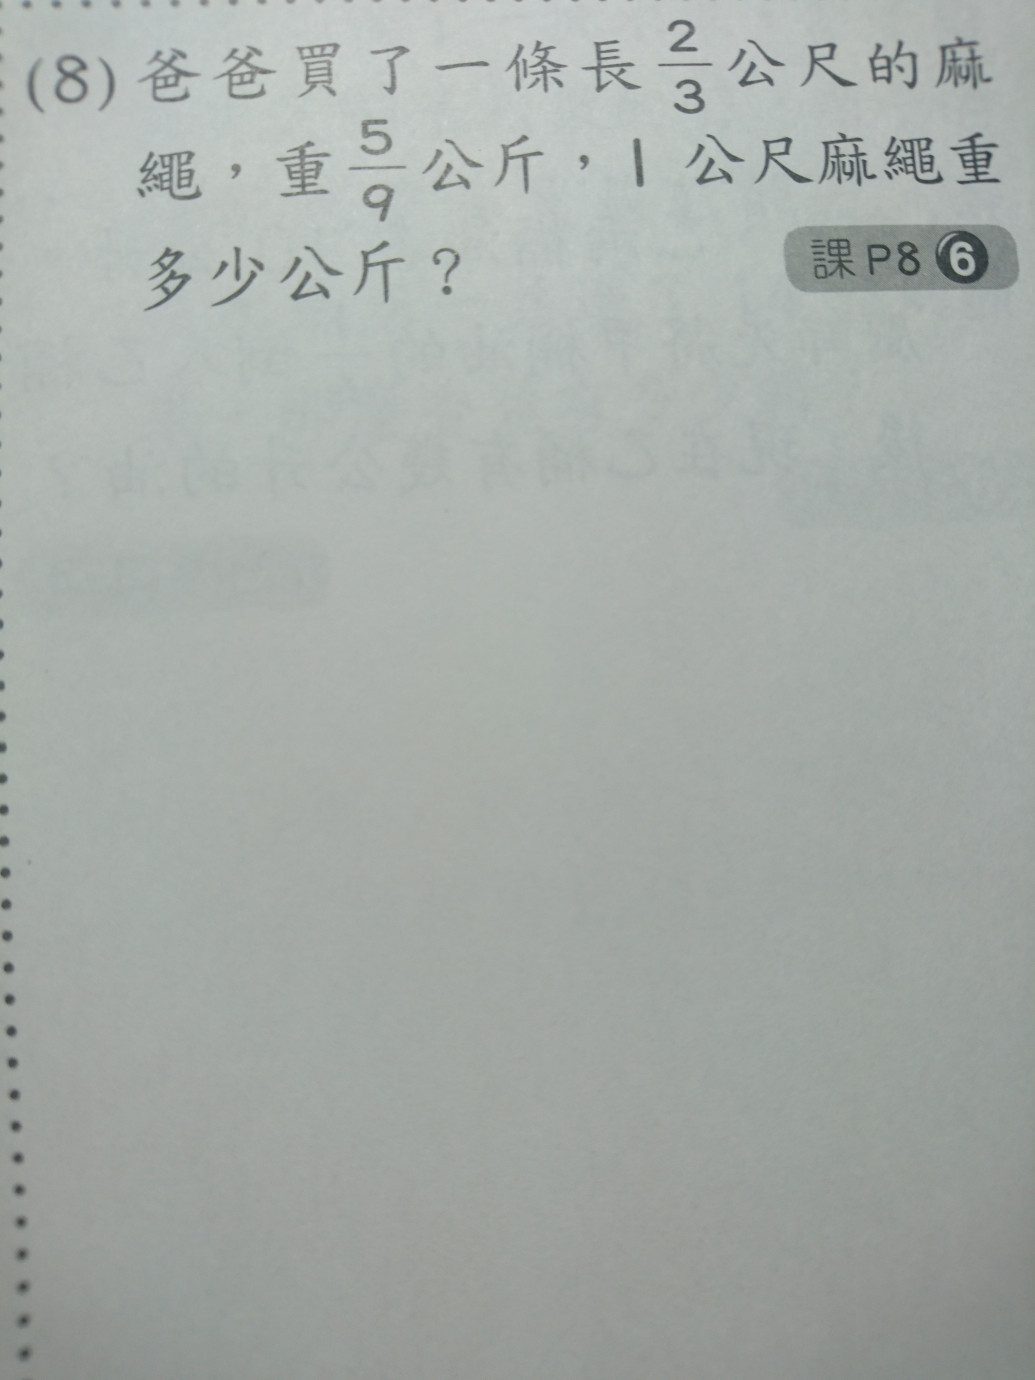 (8) 爸爸買了一條長2/3公尺的麻
繩，重5/9公斤，1 公尺麻繩重
多少公斤？
課P8 6